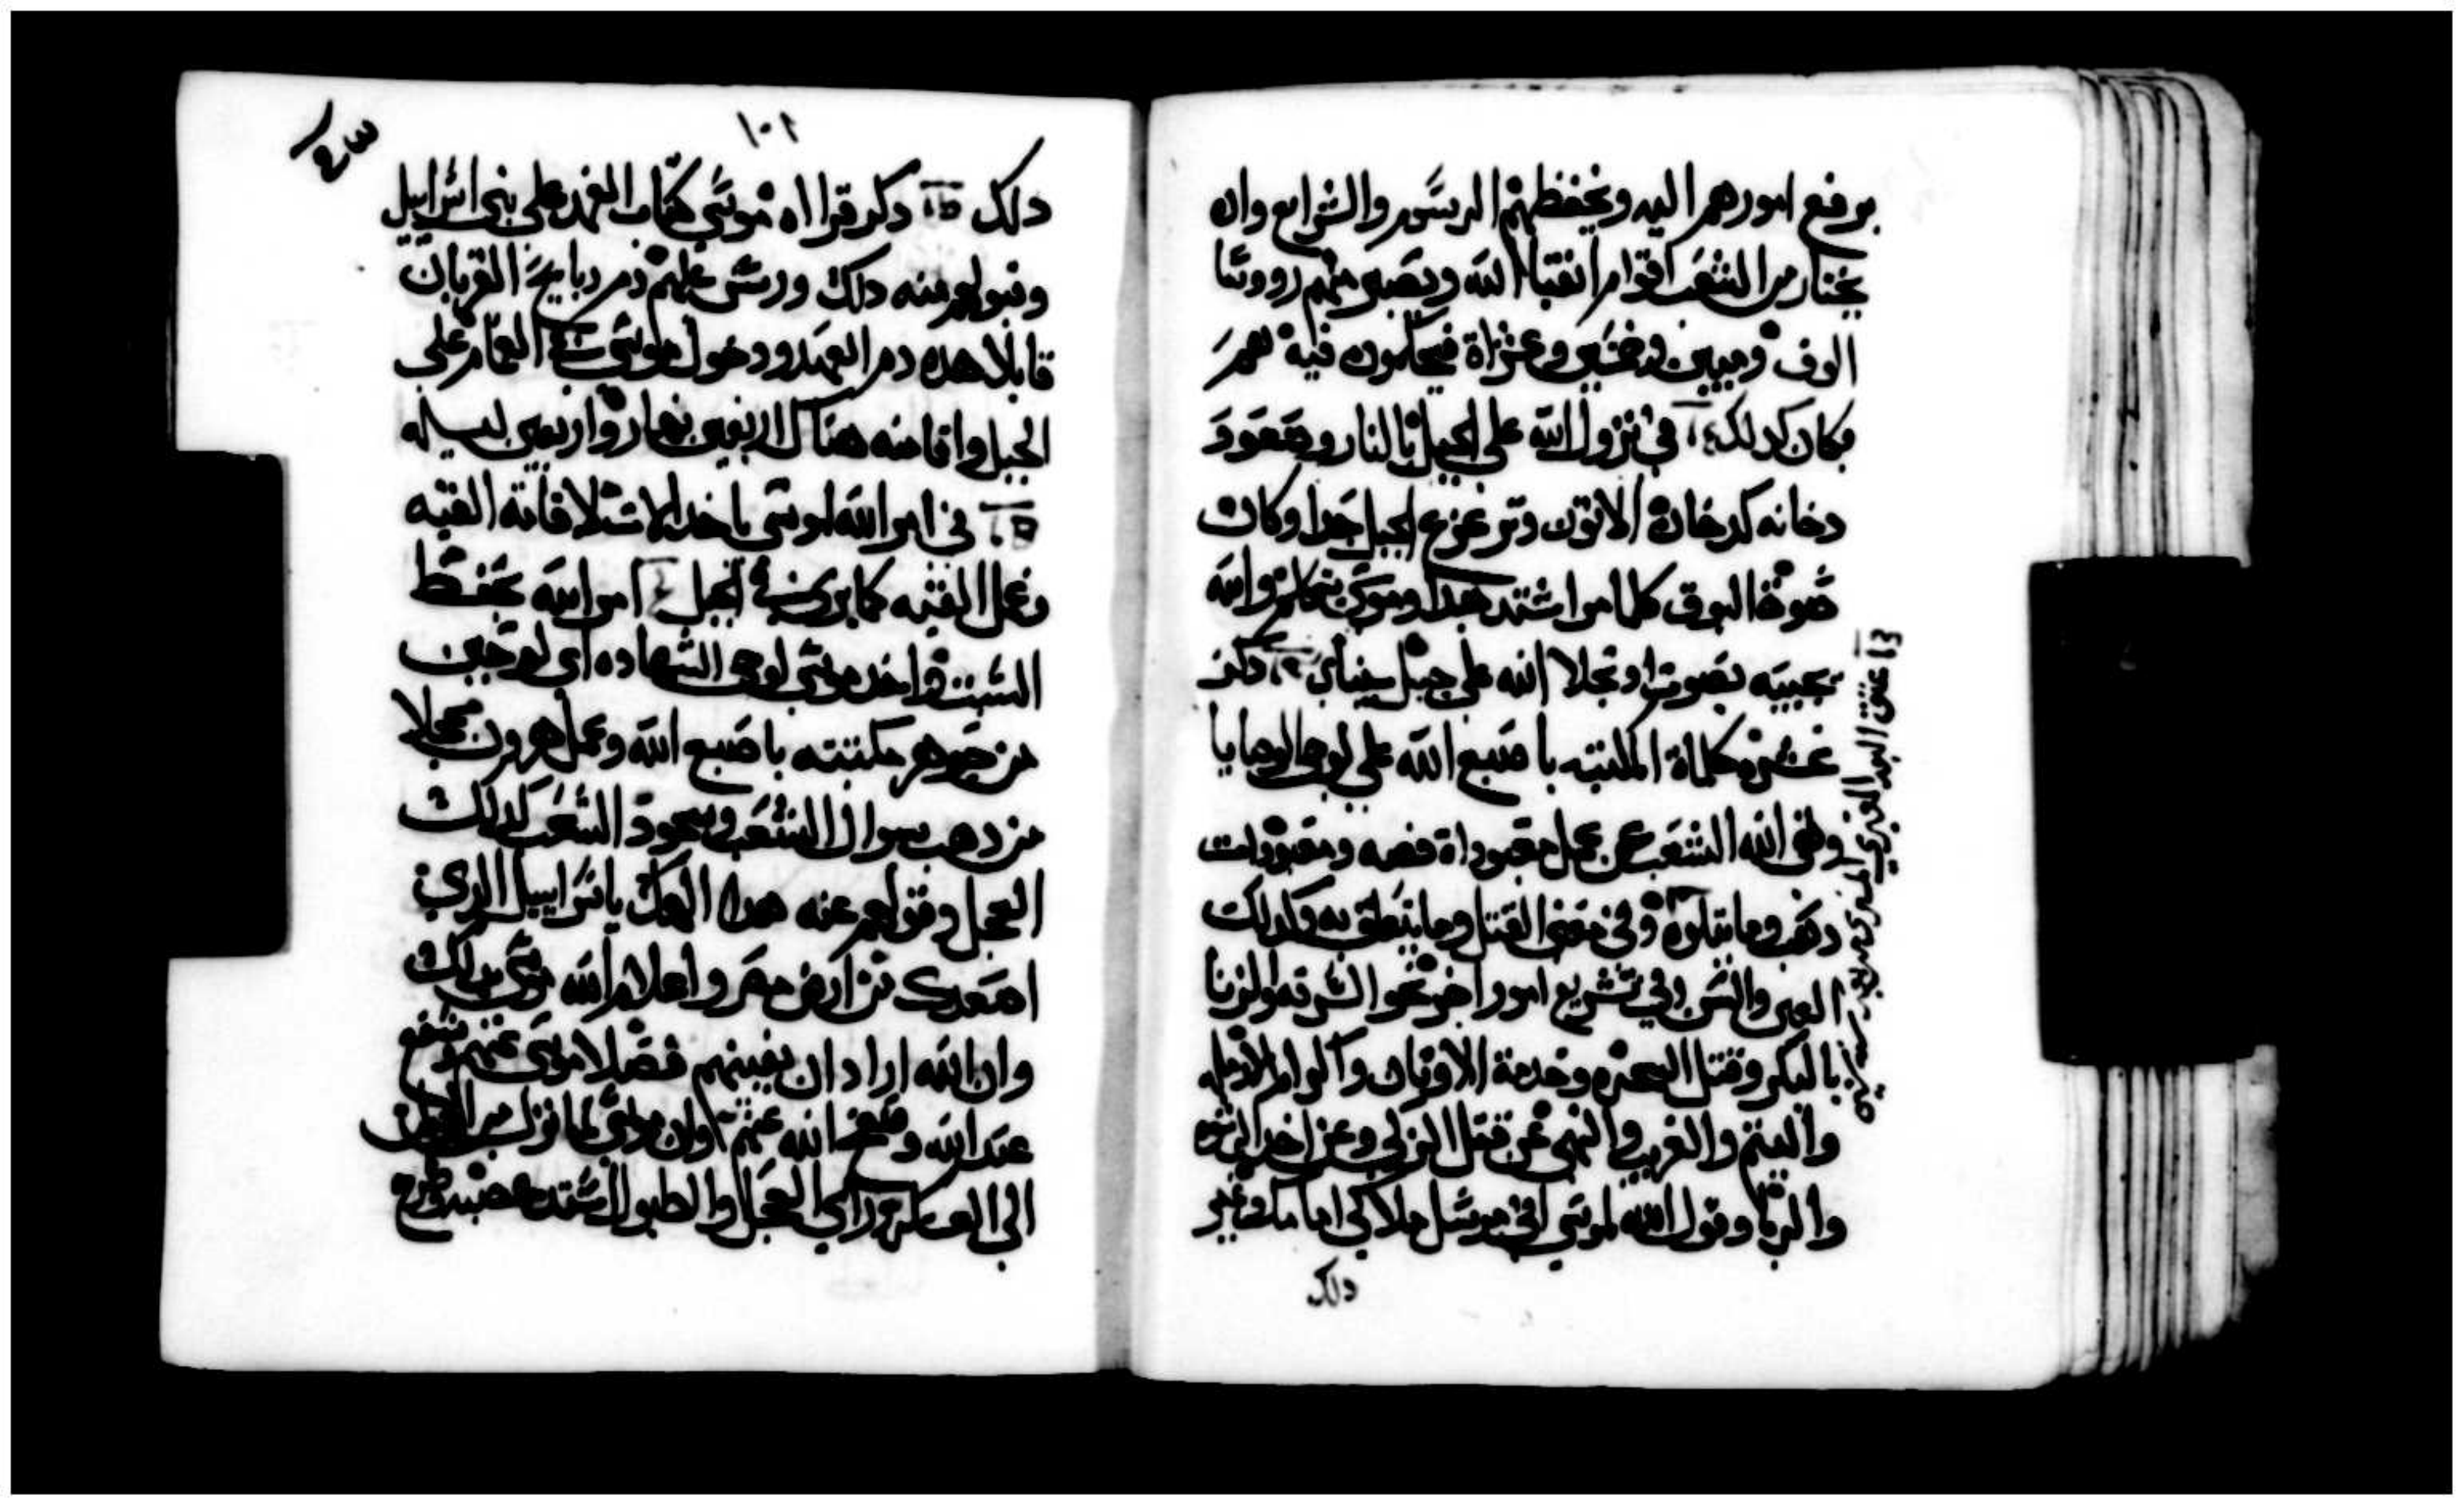 يرفع امورهم اليه ويحفظهم الرسوم والشرايع وان
يختار من الشعب اقوام اتقيا الله ويصير منهم رووسا
الوف وميين وخمسين وعشراة فيحكمون فيه لهم
فكان كدلك في نزول الله علي الجبل بالنار وصعود
دخانه كدخان الاتون وتزعزع الجبل جدا وكان
صوة البوق كلما مر اشتد جدا وموسي يتكلم والله
يجيبه بصوت وتجلا الله علي جبل سيناي دكر
عشر كلماة المكتبه باصبع الله علي لوحي الوصايا
ونهي الله الشعب عن عمل معبوداة فضه ومعبودات
دهب وما يتلوه وفي معني القتل وما يتعلق به وكدلك
العين والسن وفي تشريع امور اخر نحو السرقه والزنا
بالبكر وقتل السحره وخدمة الاوثان واكرام الارمله
واليتيم والغريب والنهي عن قتل الزكي وعن اخد الرشوه
والربا وقول الله لموسي اني مرسل ملاكي امامك وغير
دلك
دلك دكر قرااه موسي كتاب العهد علي بني اسراييل
وقبولهم منه دلك ورش عليهم دم دبايح القربان
قايلا هده دم العهد ودخول موسي في الغمام علي
الجبل واقامته هناك اربعين نهار واربعين ليله
في امر الله لموسي باخد الاشلا قاتة القبه
وعمل القبه كما يري في الجبل امر الله بحفظ
السبت واخد موسي لوحي الشهاده اي لوحين
من جوهر مكتبته باصبع الله وعمل هرون عجلا
من دهب بسوال الشعب وسجود الشعب لدلك
العجل وقولهم عنه هدا الهك ياسراييل الدي
اصعدك من ارض مصر واعلام الله موسي بدلك
وان الله اراد ان يفينهم فصلا موسي عنهم وشفع
عند الله وصفح الله عنهم وان موسي لما نزل من الجبل
الي العسكر وراي العجل والطبول اشتد غضبه وطرح